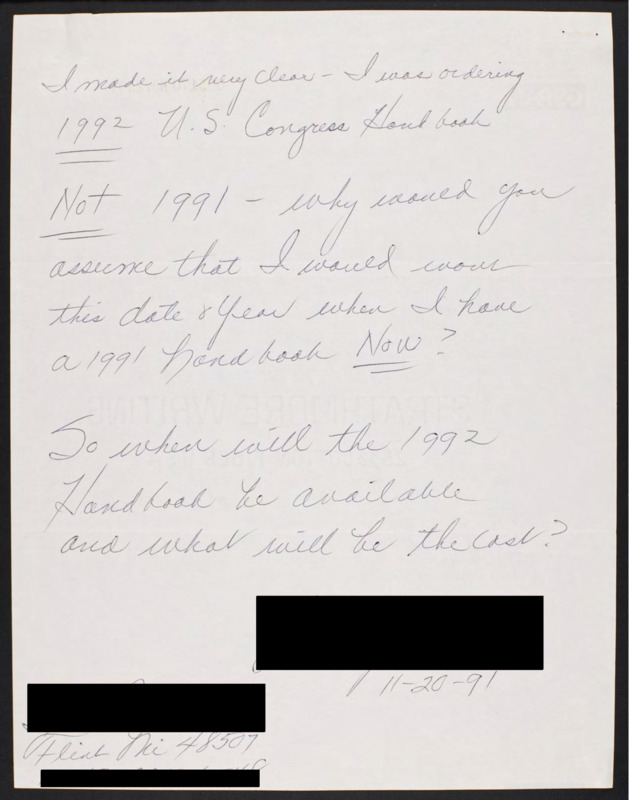 I made it very clear - I was ordering
1992 U.S. Congress Handbook
Not 1991 - why would you
assume that I would want
this date & year when I have
a 1991 handbook Now?
So when will the 1992
Handbook be available
and what will be the cost?
11-20-91
Flint Mi 48507